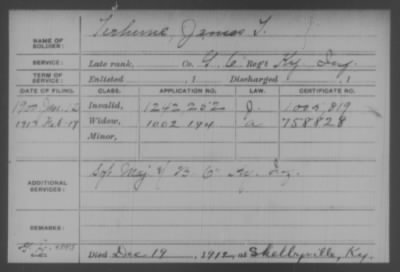 Terhune, James T.
NAME OF SOLDIER:
SERVICE: Late rank, Co. G, 6 Reg't Ky Inf.
TERM OF SERVICE: Enlisted , 1 Discharged , 1
DATE OF FILING. CLASS. APPLICATION NO. LAW. CERTIFICATE NO.
1900 Jan. 12 Invalid, 1242252 J.
1913 Feb. 17 Widow, 1002194 a 758828
Minor,
ADDITIONAL SERVICES: Maj 6 Ky. Inf.
REMARKS:
Died Dec 19, 1912, at Shelbyville, Ky.